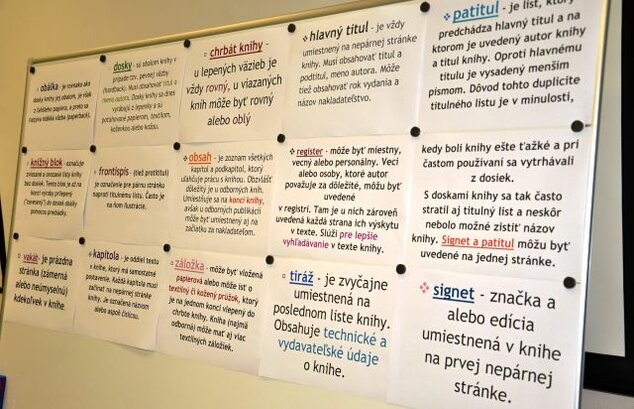 obálka
dosky - sú obalom knihy v
prípade tzv. pevnej väzby
(hardback). Musí obsahovať titul a
meno autora. Dosky knihy sa dnes
vyrábajú z lepenky a sú
poťahované papierom, tenčím,
koženkou alebo kožou.
chrbát knihy -
u lepených väzieb je
vždy rovný, u viazaných
kníh môže byť rovný
alebo oblý
hlavný titul - je vždy
umiestnený na nepárnej stránke
knihy. Musí obsahovať titul a
podtitul, meno autora. Môže
tiež obsahovať rok vydania a
názov nakladateľstvo.
patitul - je list, ktorý
predchádza hlavný titul a na
ktorom je uvedený autor knihy
a titul knihy. Oproti hlavnému
titulu je vysadený menším
písmom. Dôvod tohto duplicite
titulného listu je v minulosti,
knižný blok - označuje
zviazané a orezané listy knihy
bez dosiek.
frontispis - (tiež protititul)
je označenie pre párnu stránku
naproti titulnému listu. Často je
na ňom ilustrácie.
obsah - je zoznam všetkých
kapitol a podkapitol, ktorý
uľahčuje prácu s knihou. Obzvlášť
dôležitý je u odborných kníh.
Umiestňuje sa na konci knihy,
avšak u odborných publikácií
môže byť umiestnený aj na
začiatku za nakladateľstvom.
register - môže byť miestny,
vecný alebo personálny. Veci
alebo osoby, ktoré autor
považuje za dôležité, môžu byť
uvedené
v registri. Tam je u nich zároveň
uvedená každá strana ich výskytu
v texte. Slúži pre lepšie
vyhľadávanie v texte knihy.
kedy boli knihy ešte ťažké a pri
častom používaní sa vytrhávali
z dosiek.
S doskami knihy sa tak často
stratil aj titulný list a neskôr
nebolo možné zistiť názov
knihy. Signet a patitul môžu byť
uvedené na jednej stránke.
vakát- je prázdna
stránka (zámerná
alebo neúmyselnú)
kdekoľvek v knihe
kapitola - je oddiel textu
v knihe, ktorý má samostatné
postavenie. Každá kapitola musí
začínať na nepárnej stránke
knihy. Je označená názvom
alebo aspoň číslicou.
záložka - môže byť vložená
papierová alebo môže ísť o
textilný či kožený prúžok, ktorý
je na jednom konci vlepený do
chrbte knihy. Kniha (najmä
odborná) môže mať aj viac
textilných záložiek.
tiráž - je zvyčajne
umiestnená na
poslednom liste knihy.
Obsahuje technické a
vydavateľské údaje
o knihe.
signet - značka a
alebo edícia
umiestnená v knihe
na prvej nepárnej
stránke.